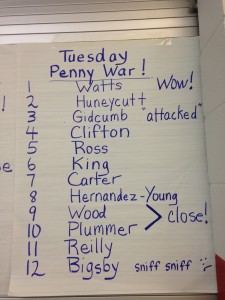 Tuesday
Penny War!
1 Watts Wow!
2 Huneycutt
3 Gidcumb "attacked"
4 Clifton
5 Ross
6 King
7 Carter
8 Hernandez-Young
9 Wood
10 Plummer > close!
11 Reilly
12 Bigsby sniff sniff